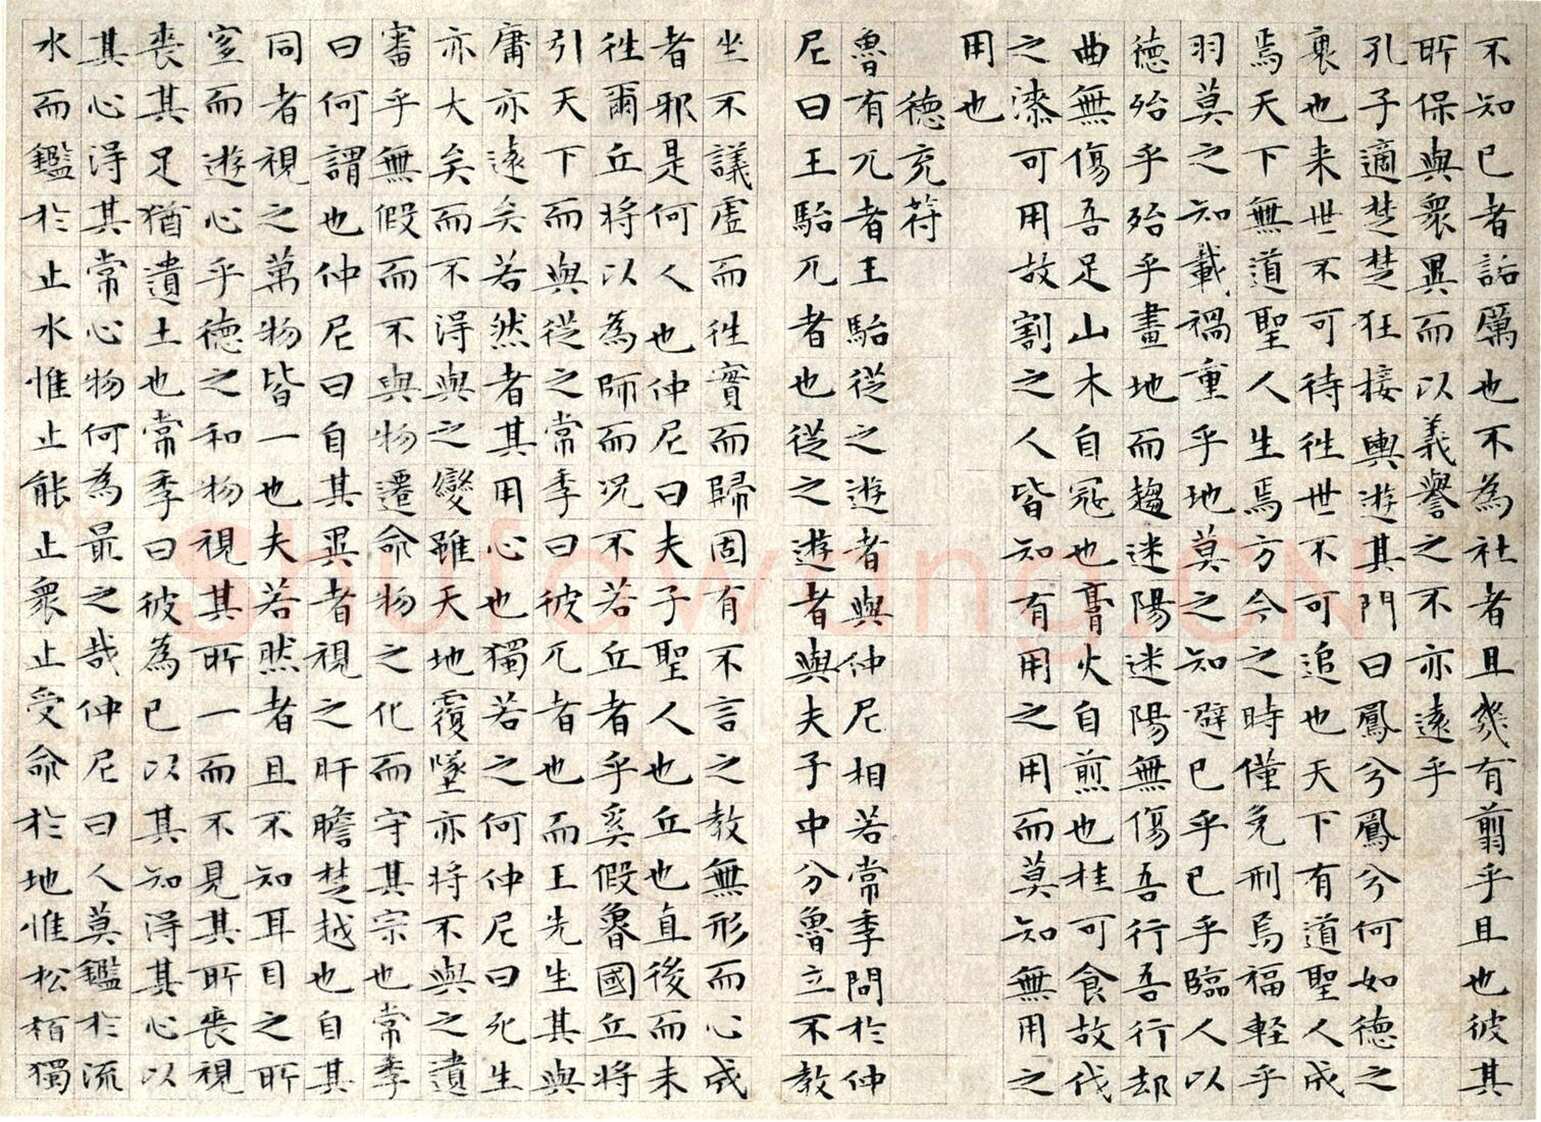 不知已者詬厲也不為社者且幾有翦乎且也彼其
所保與衆異而以義譽之不亦遠乎
孔子適楚楚狂接輿遊其門曰鳳兮鳳兮何如德之
衰也来世不可待往世不可追也天下有道聖人成
焉天下無道聖人生焉方今之時僅免刑焉福輕乎
羽莫之知載禍重乎地莫之知避已乎已乎臨人以
德殆乎殆乎畫地而趨迷陽迷陽無傷吾行吾行却
曲無傷吾足山木自寇也膏火自煎也桂可食故伐
之漆可用故割之人皆知有用之用而莫知無用之
用也
德充符
魯有兀者王駘從之遊者與仲尼相若常季問於仲
尼曰王駘兀者也從之遊者與夫子中分魯立不教
坐不議虛而往實而歸固有不言之教無形而心成
者邪是何人也仲尼曰夫子聖人也丘也直後而未
往爾丘將以為師而況不若丘者乎奚假魯國丘將
引天下而與從之常季曰彼兀者也而王先生其與
庸亦遠矣若然者其用心也獨若之何仲尼曰死生
亦大矣而不得與之變雖天地覆墜亦將不與之遺
審乎無假而不與物遷命物之化而守其宗也常季
曰何謂也仲尼曰自其異者視之肝膽楚越也自其
同者視之萬物皆一也夫若然者且不知耳目之所
宜而遊心乎德之和物視其所一而不見其所喪視
喪其足猶遺土也常季曰彼為已以其知得其心以
其心得其常心物何為最之哉仲尼曰人莫鑑於流
水而鑑於止水惟止能止衆止受命於地惟松栢獨
Shufawang.CN